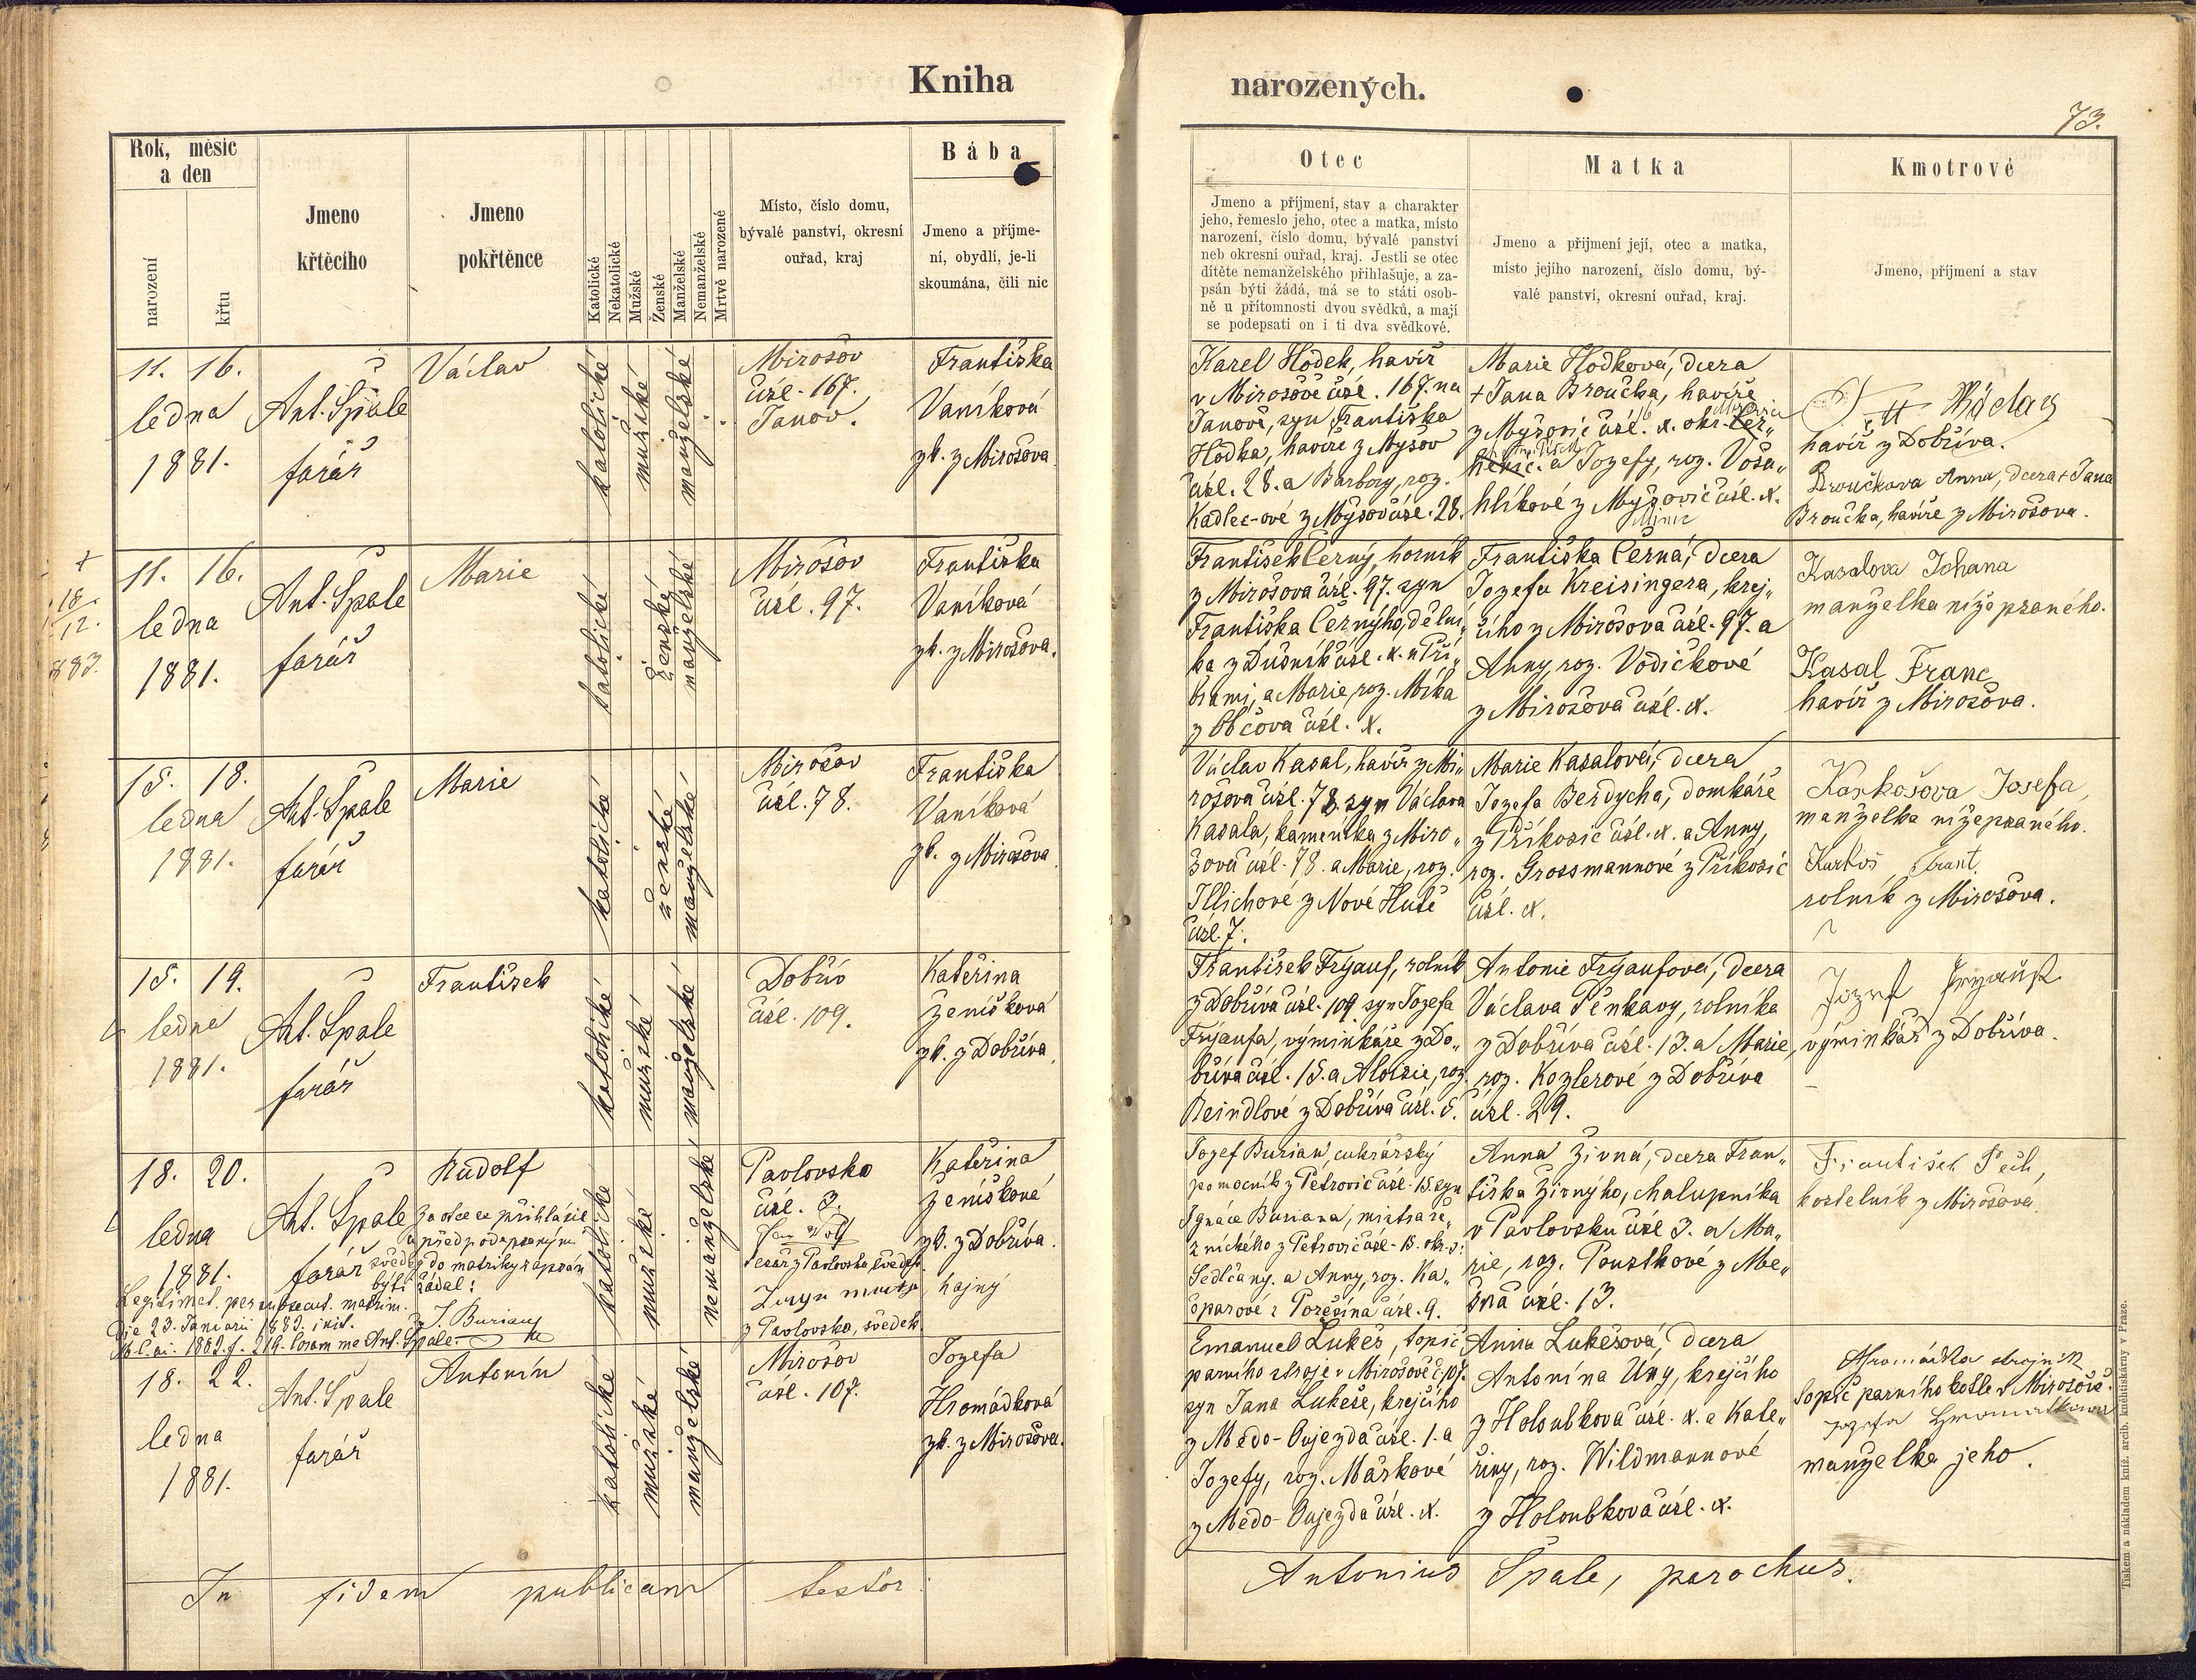 Kniha
narozených.
73.
Rok, měsíc
a den
narození
křtu
Jmeno
křtěcího
Jmeno
pokřtěnce
Katolické
Nekatolické
Mužské
Ženské
Manželské
Nemanželské
Mrtvě narozené
Místo, číslo domu,
bývalé panství, okresní
ouřad, kraj
Bába
Jmeno a příjme-
ní, obydlí, je-li
skoumána, čili nic
Otec
Jmeno a příjmení, stav a charakter
jeho, řemeslo jeho, otec a matka, místo
narození, číslo domu, bývalé panství
neb okresní ouřad, kraj. Jestli se otec
dítěte nemanželského přihlašuje, a za-
psán býti žádá, má se to státi osob-
ně u přítomnosti dvou svědků, a mají
se podepsati on i ti dva svědkové.
Matka
Jmeno a přijmení její, otec a matka,
místo jejího narození, číslo domu, bý-
valé panství, okresní ouřad, kraj.
Kmotrové
Jmeno, příjmení a stav
11. 16.
ledna
1881.
Ant. Špale
farář
Václav
katolické
mužské
manželské
Mirošov
čísl. 167.
Janov.
Františka
Vaníková
zk. z Mirošova
Karel Hodek, havíř
v Mirošově čísl. 167. na
Janově, syn Františka
Hodka, havíře z Myšov
čísl. 28. a Barbory, roz.
Kadlec-ové z Myšov čísl. 28.
Marie Hodková, dcera
+ Jana Broučka, havíře
z Myšovic čísl. x. okr.
a Jozefy, roz. Voša„
hlíkové z Myšovic čísl. x.
Václav
havíř z Dobříva.
Broučkova Anna, dcera + Jana
Broučka, havíře z Mirošova.
+
18.
12.
883.
11. 16.
ledna
1881.
Ant. Špale
farář
Marie
katolické
ženské
manželské
Mirošov
čísl. 97.
Františka
Vaníková
zk. z Mirošova.
František Černý, horník
z Mirošova čísl. 97. syn
Františka Černýho, dělní„
ka z Dušník čísl. x. u Pří„
brami, a Marie, roz. Míka
z Občova čísl. x.
Františka Černá, dcera
Jozefa Kreisingera, krej„
čího z Mirošova čísl. 97. a
Anny, roz. Vodičkové
z Mirošova čísl. x.
Kasalova Johana
manželka níže psaného.
Kasal Franc
havíř z Mirošova.
15. 18.
ledna
1881.
Ant. Špale
farář
Marie
katolické
ženské
manželské
Mirošov
čísl. 78.
Františka
Vaníková
zk. z Mirošova
Václav Kasal, havíř z Mi„
rošova čísl. 78. syn Václava
Kasala, kameníka z Miro„
šova čísl. 78. a Marie, roz.
Illichové z Nové Hutě
čísl. 7.
Marie Kasalová, dcera
Jozefa Berdycha, domkáře
z Příkosic čísl. x. a Anny,
roz. Grossmannové z Příkosic
čísl. x.
Karkošova Josefa,
manželka nížepsaného.
Karkoš Frant.
rolník z Mirošova.
15. 19.
ledna
1881.
Ant. Špale
farář
František
katolické
mužské
manželské
Dobřív
čísl. 109.
Kateřina
Ženíšková
zk. z Dobříva
František Fryauf, rolník
z Dobříva čísl. 109. syn Jozefa
Fryaufa, výminkáře z Do„
bříva čísl. 15. a Aloisie, roz.
Beindlové z Dobříva čísl. 5.
Antonie Fryaufová, dcera
Václava Pěnkavy, rolníka
z Dobříva čísl. 13. a Marie,
roz. Kozlerové z Dobříva
čísl. 29.
Jozef Fryauf
výminkář z Dobříva.
18. 20.
ledna
1881.
Ant. Špale
farář
Rudolf
Za otce se přihlásil
a před podepsanými
svědky do matriky zapsán
býti žádal:
J. Burian
Legitimat. per subsecut. matrim.
die 23. Januarii 1883. init.
Coram me Ant. Špale.
katolické
mužské
nemanželské
Pavlovsko
čísl. 3.
Jan Wolf
tesař z Pavlovska, svědek
hajný
z Pavlovska, svědek.
Kateřina
Ženíšková
zk. z Dobříva.
Jozef Burian, cukrářský
pomocník z Petrovic čísl. 15. syn
Ignáce Buriana, mistra ře„
znického z Petrovic čísl. 15. okr.
Sedlčany. a Anny, roz. Ka„
šparové z Porešína čísl. 9.
Anna Živná, dcera Fran„
tiška Živnýho, chalupníka
v Pavlovsku čísl 3. a Ma„
rie, roz. Poustkové z Me„
šna čísl. 13.
František Pech,
kostelník z Mirošova.
18. 22.
ledna
1881.
Ant. Špale
farář
Antonín
katolické
mužské
manželské
Mirošov
čísl. 107.
Jozefa
Hromádková
zk. z Mirošova.
Emanuel Lukeš, topič
parního stroje v Mirošově č. 107.
syn Jana Lukeše, krejčího
z Medo-Oujezda čísl. 1. a
Jozefy, roz. Maškové
z Medo-Oujezda čísl. x.
Anna Lukešová, dcera
Antonína Uny, krejčího
z Holoubkova čísl. x. a Kate„
řiny, roz. Wildmannové
z Holoubkova čísl. x.
Hromádka strojník
topič parního kotle v Mirošově.
Jozefa Hromádková
manželka jeho.
In fidem publicam testor
Antonius Špale, parochus.
Tiskem a nákladem kníž. arcib. knihtiskárny v Praze.